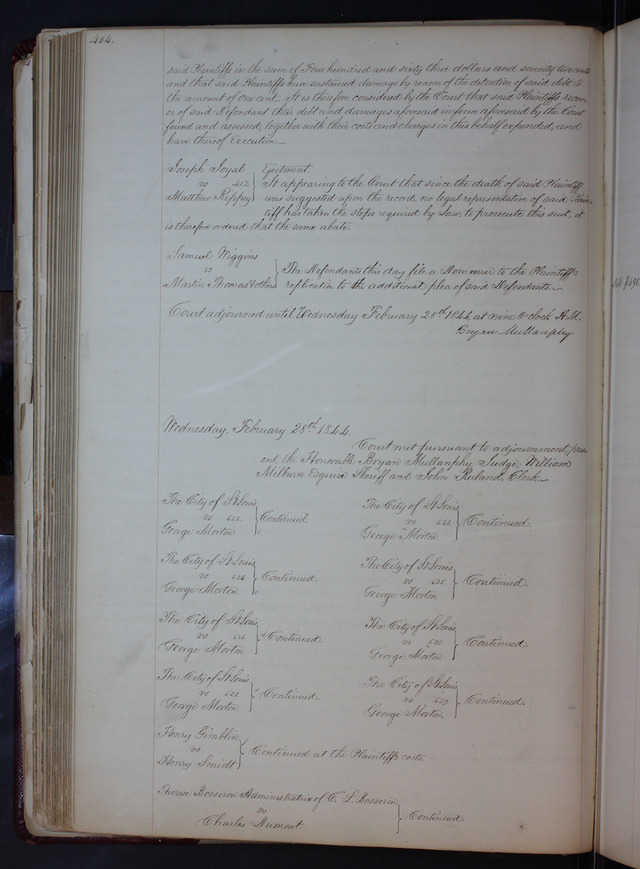 464.
said Plaintiffs in the sum of Four hundred and sixty three dollars and seventy two cents
and that said Plaintiffs have sustained damage by reason of the detention of said debt to
the amount of One cent. It is therefore considered by the Court that said Plaintiffs recov-
er of said Defendant their debt and damages aforesaid in form aforesaid by the Court
found and assessed, together with their costs and charges in this behalf expended, and
have thereof Execution.
Joseph Loyal
vs 402.
Matthew Rippey
Ejectment.
It appearing to the Court that since the death of said Plaintiff
was suggested upon the record, no legal representative of said Plain-
tiff has taken the steps required by Law, to prosecute this suit, it
is therefore ordered that the same abate.
Samuel Wiggins
vs
Martin Thomas & others
The Defendants this day file a Demurrer to the Plaintiffs
replication to the additional plea of said Defendants.
Court adjourned until Wednesday February 28th 1844, at nine O'clock A.M.
Bryan Mullanphy
Wednesday, February 28th 1844.
Court met pursuant to adjournment, pres-
ent, the Honorable Bryan Mullanphy, Judge, William
Milburn Esquire Sheriff and John Ruland, Clerk.
The City of St Louis
vs 622.
George Morton
Continued.
The City of St Louis
vs 623.
George Morton
Continued.
The City of St Louis
vs 624.
George Morton
Continued.
The City of St Louis
vs 625.
George Morton
Continued.
The City of St Louis
vs 626
George Morton
Continued.
The City of St Louis
vs 627.
George Morton
Continued.
The City of St Louis
vs 628.
George Morton
Continued.
The City of St Louis
vs 629.
George Morton
Continued.
Henry Gimblin
vs
Henry Smidt
Continued at the Plaintiffs costs.
Therese Bosseron Administratrix of C. L. Bosseron
vs
Charles Dumont
Continued